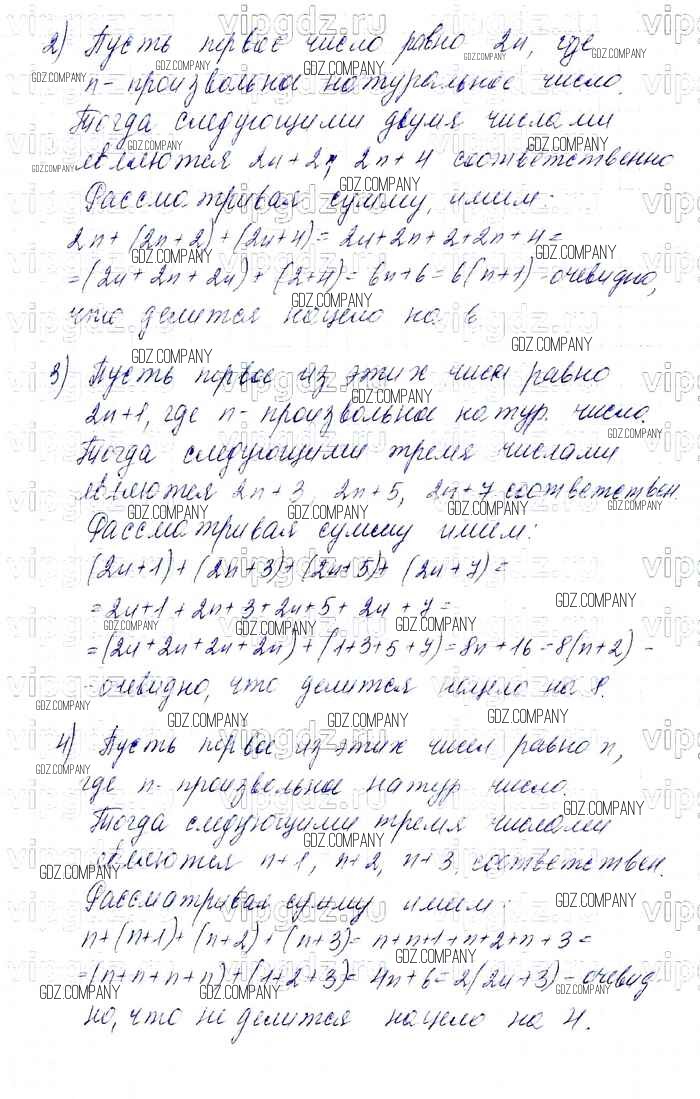 2) Пусть первое число равно 2n, где
n - произвольное натуральное число.
Тогда следующими двумя числами
являются 2n+2, 2n+4 соответственно
Рассматривая сумму, имеем:
2n+(2n+2)+(2n+4)= 2n+2n+2+2n+4=
=(2n+2n+2n)+(2+4)=6n+6=6(n+1) - очевидно,
что делится нацело на 6
3) Пусть первое из этих чисел равно
2n+1, где n - произвольное натур. число.
Тогда следующими тремя числами
являются 2n+3, 2n+5, 2n+7 соответствен.
Рассматривая сумму имеем:
(2n+1)+(2n+3)+(2n+5)+(2n+7)=
=2n+1+2n+3+2n+5+2n+7=
=(2n+2n+2n+2n)+(1+3+5+7)=8n+16=8(n+2) -
- очевидно, что делится нацело на 8.
4) Пусть первое из этих чисел равно n,
где n - произвольное натур число.
Тогда следующими тремя числами
являются n+1, n+2, n+3 соответствен.
Рассматривая сумму имеем:
n+(n+1)+(n+2)+(n+3)= n+n+1+n+2+n+3=
=(n+n+n+n)+(1+2+3)= 4n+6=2(2n+3) - очевид-
но, что не делится нацело на 4.
vipgdz.ru
GDZ.COMPANY